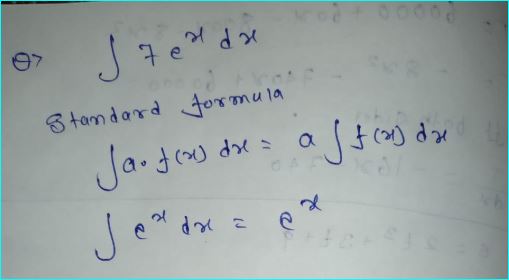 Q> ∫ 7 e^x dx
Standard formula
∫a. f(x) dx = a ∫ f(x) dx
∫ e^x dx = e^x